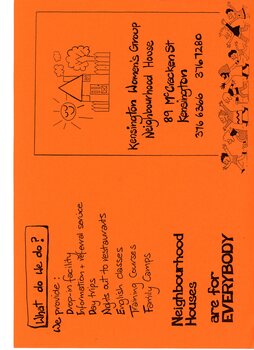 Kensington Women's Group
Neighbourhood House
89 McCracken St
Kensington
376 6366 376 7280
What do we do?
We provide:
Drop-in facility
Information + referral service
Day trips
Nights out to restaurants
English classes
Training Courses
Family Camps
Neighbourhood
Houses
are for
EVERYBODY